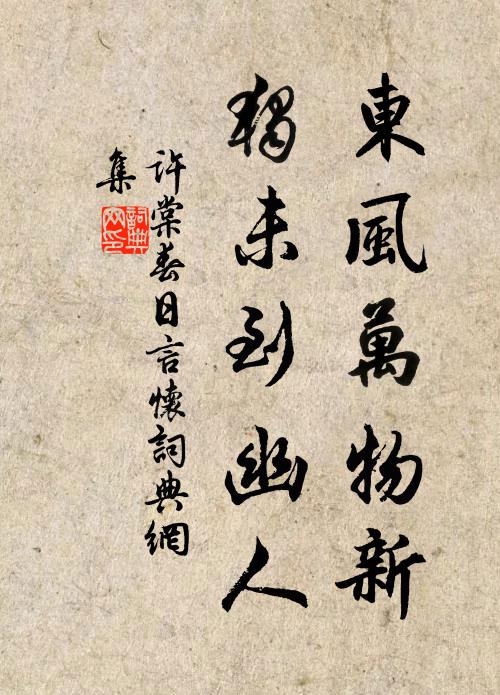 東風萬物新
獨未到幽人
許棠春日言懷詞典網
集
詞典
网印